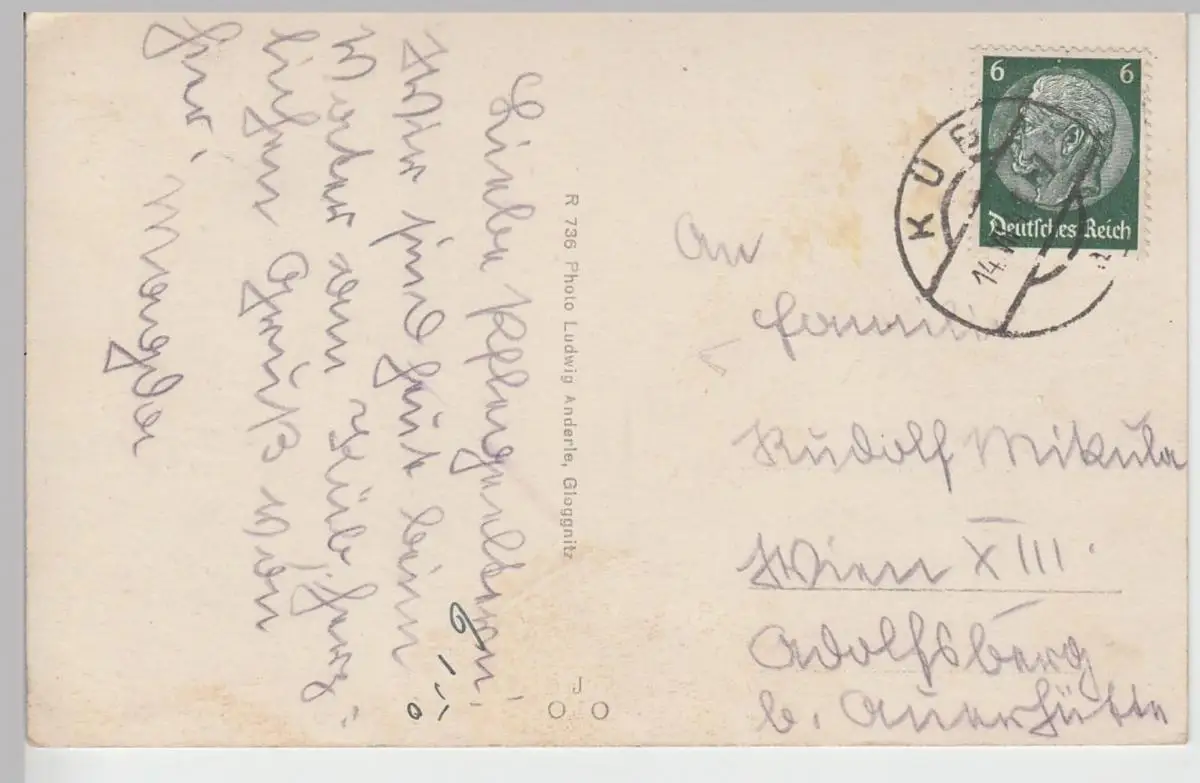 Liebe Pflegeeltern!
Wir sind gut beim
Vater am Küb, herz-
lichen Gruß von
Ihr
Magda
R 736 Photo Ludwig Anderle, Gloggnitz
J
6 6
Deutsches Reich
KÜB
14.
An
Familie
Rudolf Mikula
Wien XIII.
Adolfsberg
b. Auerhütte